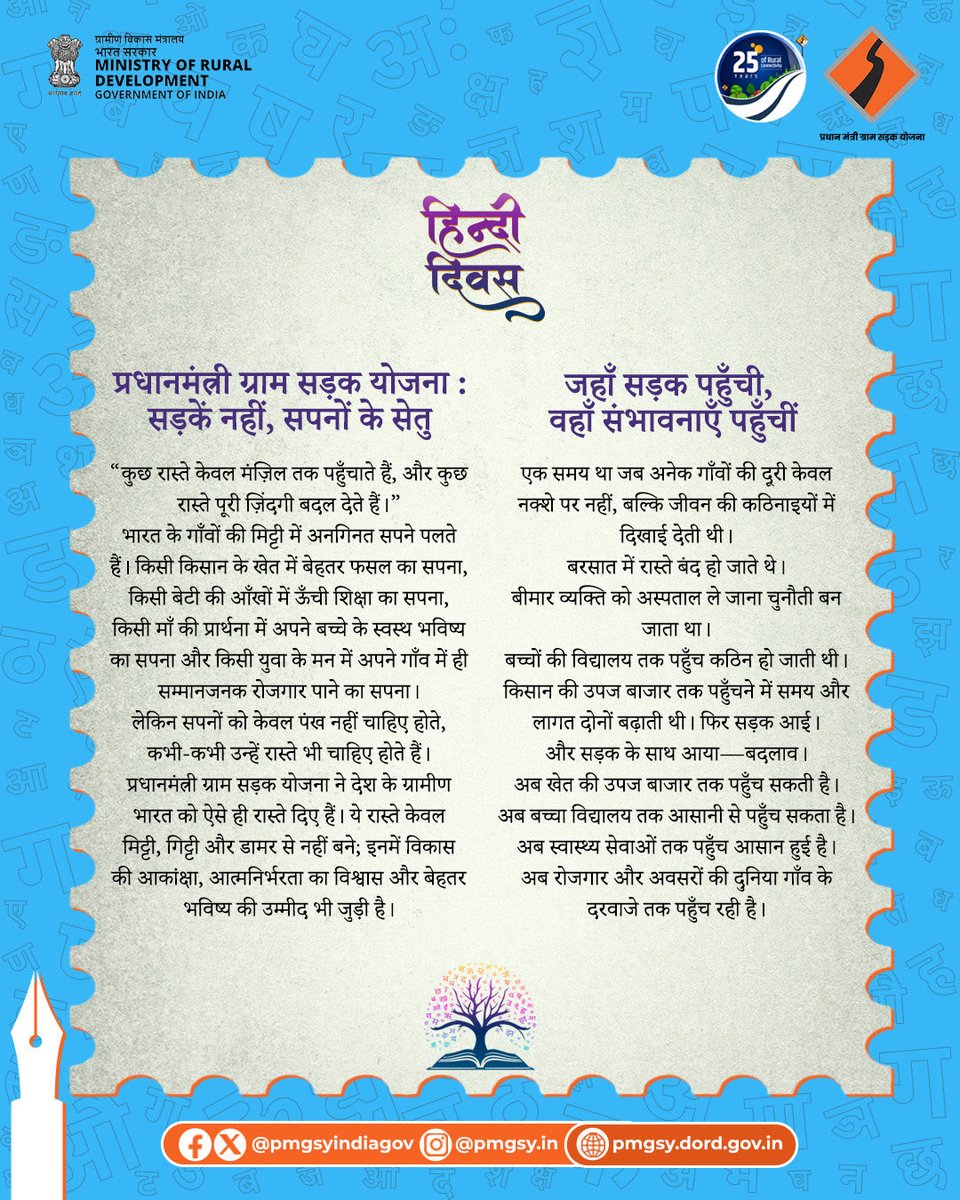 ग्रामीण विकास मंत्रालय
भारत सरकार
MINISTRY OF RURAL
DEVELOPMENT
GOVERNMENT OF INDIA
सत्यमेव जयते
25
Years
of Rural
Connectivity
प्रधान मंत्री ग्राम सड़क योजना
हिन्दी
दिवस
प्रधानमंत्री ग्राम सड़क योजना :
सड़कें नहीं, सपनों के सेतु
“कुछ रास्ते केवल मंज़िल तक पहुँचाते हैं, और कुछ
रास्ते पूरी ज़िंदगी बदल देते हैं।”
भारत के गाँवों की मिट्टी में अनगिनत सपने पलते
हैं। किसी किसान के खेत में बेहतर फसल का सपना,
किसी बेटी की आँखों में ऊँची शिक्षा का सपना,
किसी माँ की प्रार्थना में अपने बच्चे के स्वस्थ भविष्य
का सपना और किसी युवा के मन में अपने गाँव में ही
सम्मानजनक रोजगार पाने का सपना।
लेकिन सपनों को केवल पंख नहीं चाहिए होते,
कभी-कभी उन्हें रास्ते भी चाहिए होते हैं।
प्रधानमंत्री ग्राम सड़क योजना ने देश के ग्रामीण
भारत को ऐसे ही रास्ते दिए हैं। ये रास्ते केवल
मिट्टी, गिट्टी और डामर से नहीं बने; इनमें विकास
की आकांक्षा, आत्मनिर्भरता का विश्वास और बेहतर
भविष्य की उम्मीद भी जुड़ी है।
जहाँ सड़क पहुँची,
वहाँ संभावनाएँ पहुँचीं
एक समय था जब अनेक गाँवों की दूरी केवल
नक्शे पर नहीं, बल्कि जीवन की कठिनाइयों में
दिखाई देती थी।
बरसात में रास्ते बंद हो जाते थे।
बीमार व्यक्ति को अस्पताल ले जाना चुनौती बन
जाता था।
बच्चों की विद्यालय तक पहुँच कठिन हो जाती थी।
किसान की उपज बाजार तक पहुँचने में समय और
लागत दोनों बढ़ाती थी। फिर सड़क आई।
और सड़क के साथ आया—बदलाव।
अब खेत की उपज बाजार तक पहुँच सकती है।
अब बच्चा विद्यालय तक आसानी से पहुँच सकता है।
अब स्वास्थ्य सेवाओं तक पहुँच आसान हुई है।
अब रोजगार और अवसरों की दुनिया गाँव के
दरवाजे तक पहुँच रही है।
@pmgsyindiagov @pmgsy.in pmgsy.dord.gov.in